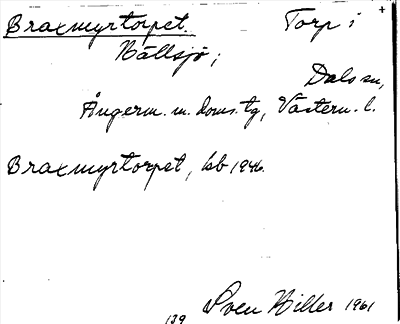 Braxmyrtorpet. Torp i +
Nällsjö;
Dals sn,
Ångerm. m. doms.tg, Västern. l.
Braxmyrtorpet, kb 1946.
139 Sven Hiller 1961